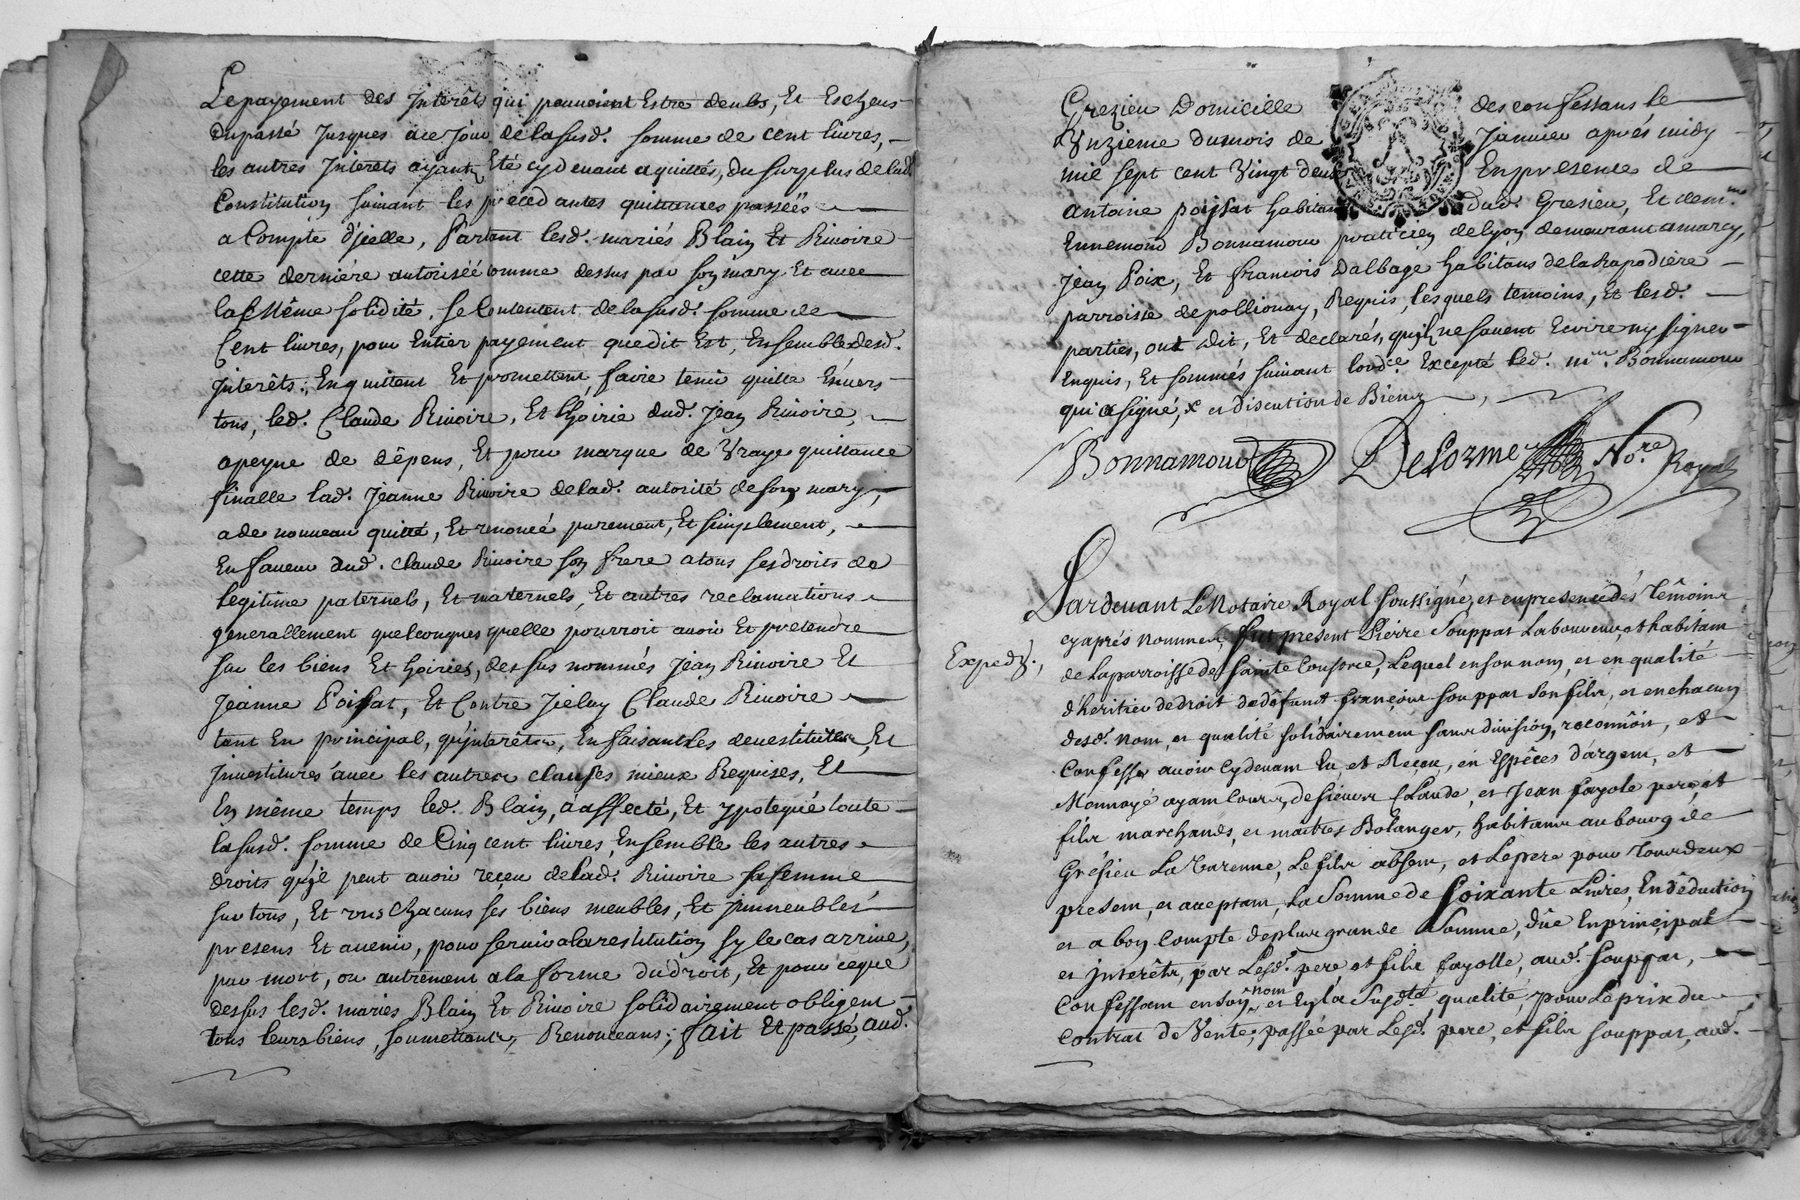 Le payement des Jnterêts qui pouvoient Estre deubs, Et Escheus
Du passé Jusques a ce Jour de la susd. somme de cent livres,
les autres Jnterets ayant Eté cy devant aquittés, du surplus de lad.
Constitution suivant les precedantes quittances passéés
a Compte d'jcelle, Partant lesd. mariés Blain Et Rivoire
cette derniére autoriséé comme dessus par son mary Et avec
la Même solidité, se Contentent de la susd. somme de
Cent livres, pour Entier payement que dit Est, Ensemble desd.
Jnterêts; En quittent Et promettent, faire tenir quitte Envers
tous, led. Claude Rivoire, Et L'hoirie dud. Jean Rivoire,
apeyne de dêpens, Et pour marque de Vraye quittance
finalle lad. Jeanne Rivoire de lad. autorité de son mary,
a de nouveau quitté, Et renoncé purement, Et simplement,
En faveur dud. Claude Rivoire son frere a tous ses droits de
legitime paternels, Et maternels, Et autres reclamations
generallement quelconques quelle pourroit avoir Et pretendre
sur les biens Et hoiries, dessus nommés Jean Rivoire Et
Jeanne Poissat, Et Contre Jceluy Claude Rivoire
tant En principal, qu'jnterêts, En faisant les devestitutes, Et
Jnvestitures avec les autres clauses mieux Requises, Et
En même temps led. Blain, a affecté, Et ypotequé toute
la susd. somme de Cinq cent livres, Ensemble les autres
droits qu'jl peut avoir reçeu de lad. Rivoire sa femme
sur tous, Et uns Chacuns ses biens meubles, Et jmmeubles
presens Et avenir, pour servir a la restitution sy le cas arrive,
par mort, ou autrement a la forme du droit, Et pour ce que
dessus lesd. mariés Blain Et Rivoire solidairement obligent
tous leurs biens, soumettants, Renonceans; fait Et passé, aud.
Grezieu Domicille des confessans, le
Unzieme du mois de Janvier aprés midy
mil sept cent Vingt deux En presence de
antoine poissat habitan dud. Gresieu, Et dem.
Ennemond Bonnamour praticien de Lyon demeurant a marcy,
Jean Poix, Et francois Dalbage habitans de la Rapodiere
parroisse de pollionay, Requis, lesquels temoins, Et lesd.
parties, ont dit, Et declarés, qu'jl ne savent Ecrire ny signer
Enquis, Et sommés suivant lord.ce Excepté led. m.re Bonnamour
qui a signé, x et discution de Biens
Bonnamour Delorme No.re Royal
Pardevant Le Notaire Royal soussigné, et en presence dés Têmoins
Exped.,
cy aprés nommes, fut present Pierre Souppat Laboureur et habitant
de la parroisse de sainte Consorce, Lequel en son nom, et en qualité
d'heritier de droit de dêfunt françois souppat son fils, et en chacun
desd. nom, et qualité solidairement sans division, reconnoit, et
Confesse avoir Cydevant Eu, et Reçeu, en Espêces d'argent, et
Monnoyé ayant Cours, de sieurs Claude, et Jean fayole pere, et
fils marchands, et maîtres Bolanger, habitans au bourg de
Grésieu La Varenne, Le fils absent, et Le pere pour Tous deux
present, et acceptant, La Somme de Soixante Livres, En dêduction
et a bon Compte de plus grande Somme, dûe En principal
et jnterêts, par Lesd. pere et fils fayolle, aud. souppat,
Confessant en son nom, et En la susd.te qualité, pour Le prix du
Contrat de Vente, passée par Lesd. pere, et fils souppat, aud.